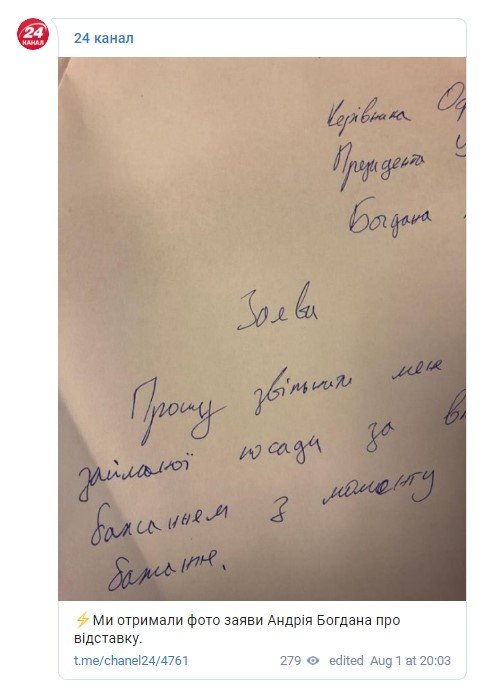 24
КАНАЛ
24 канал
Керівника Оф
Президента У
Богдана
Заява
Прошу звільнити мене
займаної посади за вл
бажанням з моменту
бажання.
⚡Ми отримали фото заяви Андрія Богдана про
відставку.
t.me/chanel24/4761
279
edited Aug 1 at 20:03